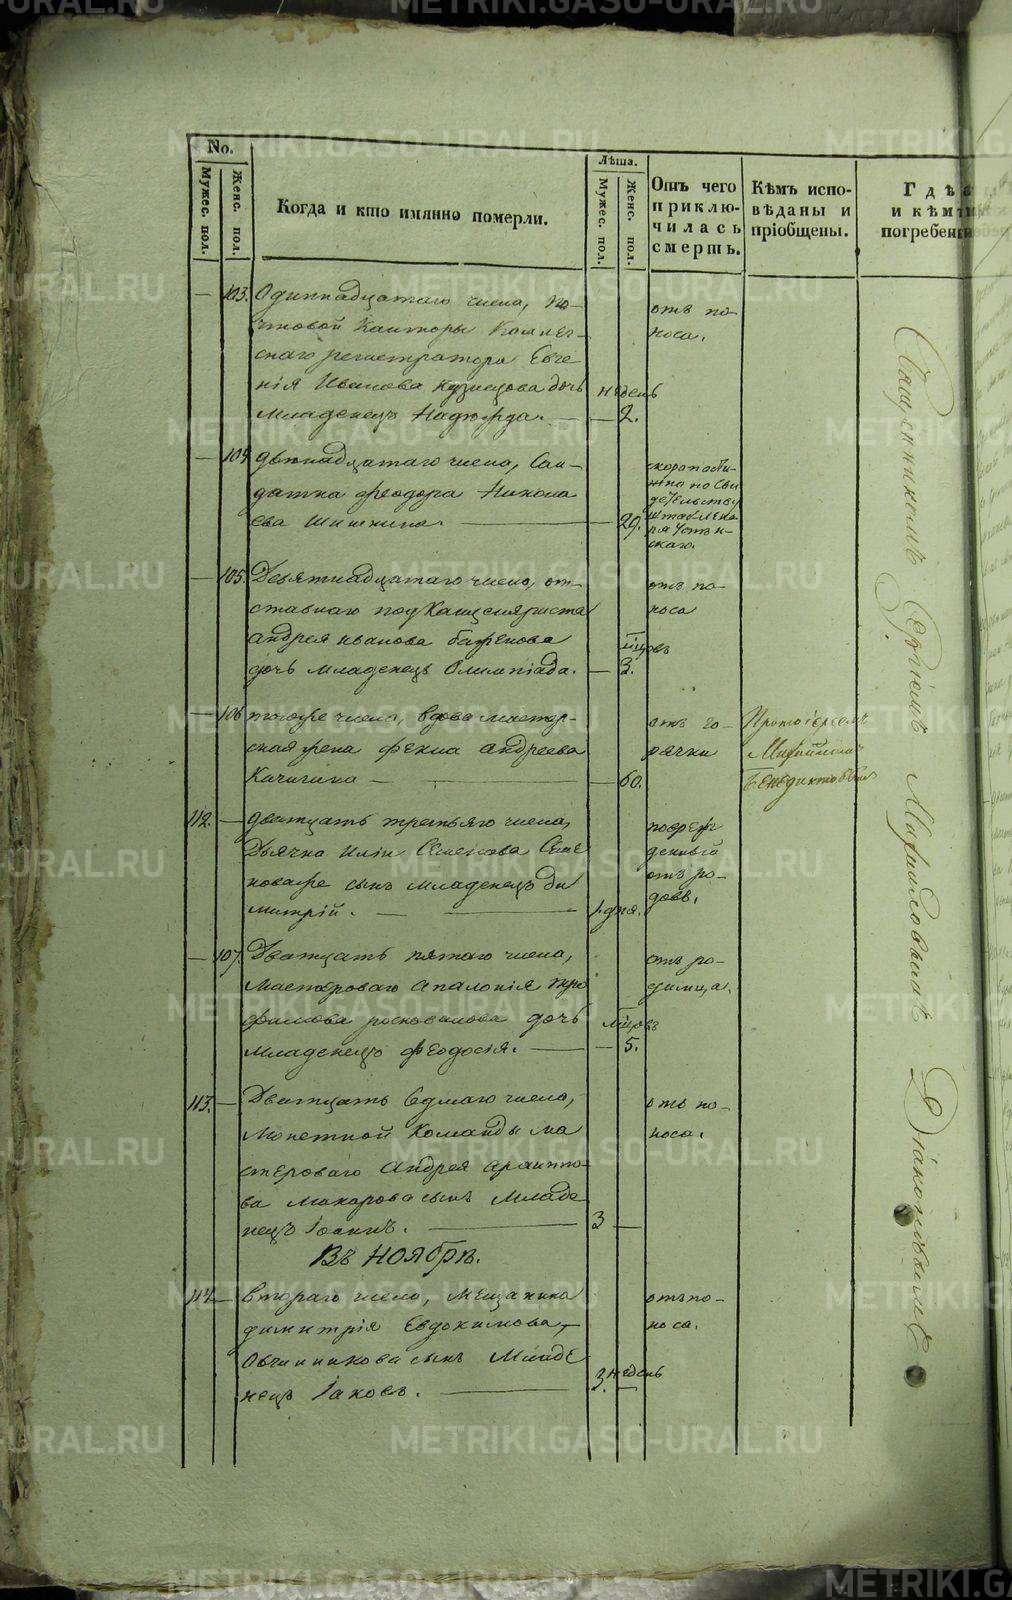 No.
Мужес. пол.
Женс. пол.
Когда и кто имянно померли.
Лѣта.
Мужес. пол.
Женс. пол.
Отъ чего
приклю-
чилась
смерть.
Кѣмъ испо-
вѣданы и
пріобщены.
Гдѣ
и кѣмъ
погребен
— 103. Одиннадцатаго числа, по-
чтовой Канторы Коллеж-
скаго регистратора Евге-
нія Иванова Кузнецова дочь
Младенецъ Надежда. —
недель
— 2.
отъ по-
носа.
— 104 двенадцатаго числа, Сол-
датка Феодора Никола
ева Шишкина. —
— 29.
скоропости-
жно по Сви
детельству
штаблека
ря
скаго.
— 105. Девятнадцатаго числа, от-
ставнаго подКанцеляриста
Андрея Иванова Баженова
дочь младенецъ Олимпіада.
мцовъ
— 3.
отъ по-
носа
— 106 тогоже числа, вдова мастер-
ская жена Фекла Андреева
Качигина —
— 60.
отъ го-
рячки
Протоіереемъ
112. — дватцать третьяго числа,
Дьячка Иліи Семенова Сте
новаже сынъ младенецъ Ди
митрій. —
1. дня.
повреж
денный
отъ ро-
довъ.
— 107. Дватцать пятаго числа,
Мастероваго Апалонія Тро
фимова дочь
Младенецъ Феодосія. —
мцовъ
— 5.
отъ ро-
димца.
113. — Дватцать Седмаго числа,
Монетной Команды ма
стероваго Андрея Архиппо-
ва Макарова сынъ Младе
нецъ Іоаннъ. —
3 —
отъ по-
носа.
Въ Ноябре.
114 — втораго числа, Мещанина
Димитрія Евдокимова
Овчинникова сынъ Младе
нецъ Іаковъ. —
недель
3. —
отъ по-
носа.
Священникомъ Сергіемъ Діакономъ
METRIKI.GASO-URAL.RU